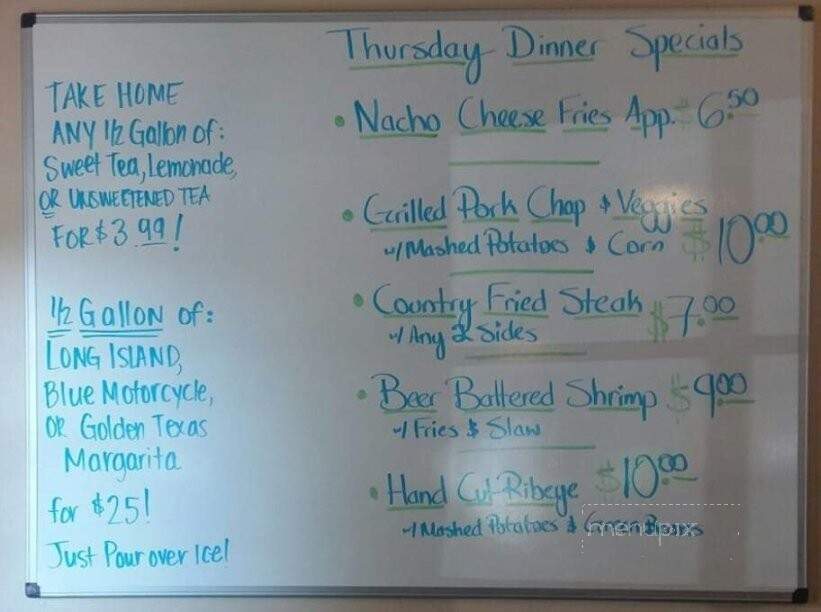 TAKE HOME
ANY 1/2 Gallon of:
Sweet Tea, Lemonade,
OR UNSWEETENED TEA
FOR $3.99!
1/2 Gallon of:
LONG ISLAND,
Blue Motorcycle,
OR Golden Texas
Margarita
for $25!
Just Pour over Ice!
Thursday Dinner Specials
• Nacho Cheese Fries App. $6.50
• Grilled Pork Chop & Veggies
w/ Mashed Potatoes & Corn $10.00
• Country Fried Steak $7.00
w/ Any 2 Sides
• Beer Battered Shrimp $9.00
w/ Fries & Slaw
• Hand Cut Ribeye $10.00
w/ Mashed Potatoes & Green Beans
menupix